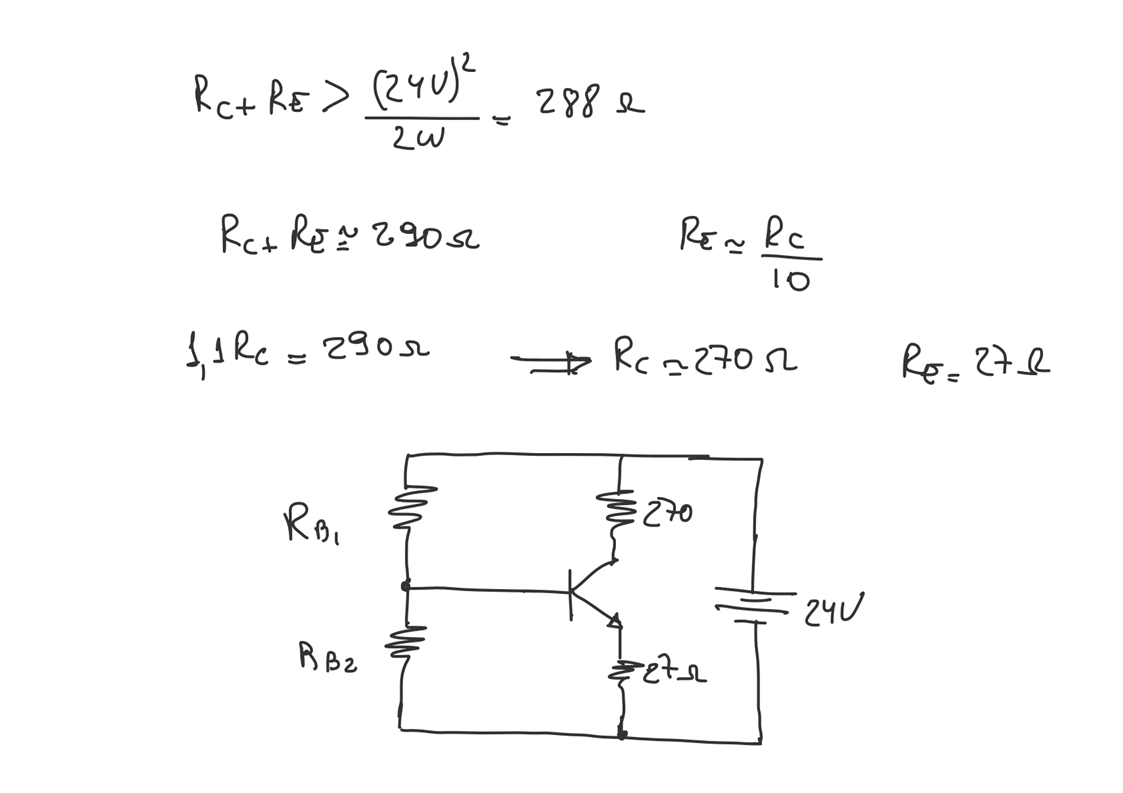 R_C + R_E > (24V)² / 2W = 288 Ω
R_C + R_E ≃ 290 Ω R_E ≃ R_C / 10
1,1 R_C = 290 Ω ⟹ R_C ≃ 270 Ω R_E = 27 Ω
R_B1 270
24V
R_B2 27 Ω